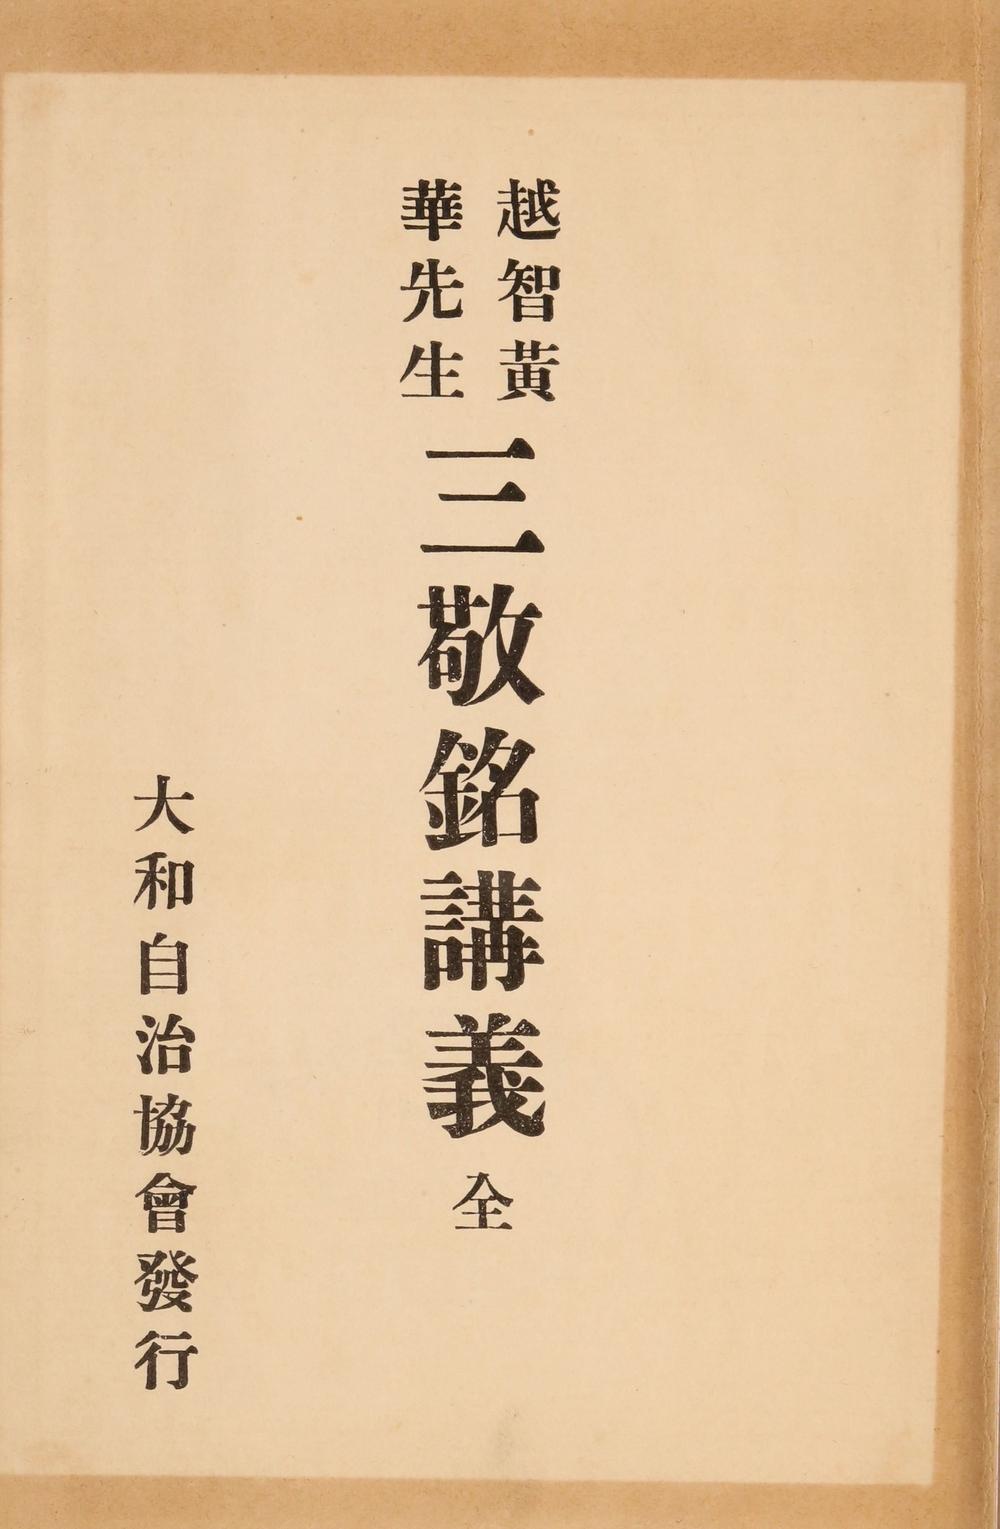 越智黃
華先生
三敬銘講義 全
大和自治協會發行